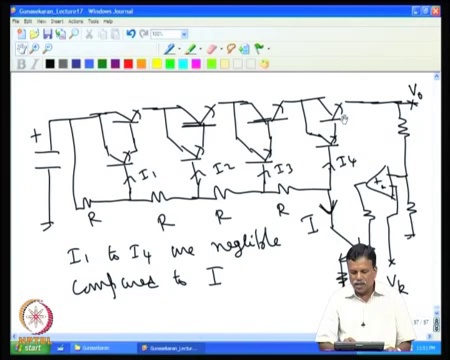 Gunasekaran_Lecture17 - Windows Journal
File Edit View Insert Actions Tools Help
V0
+
I1 I2 I3 I4
R R R R I
VR
I1 to I4 are neglible
compared to I
NPTEL
start
Gunasekaran
Gunasekaran_Lec...